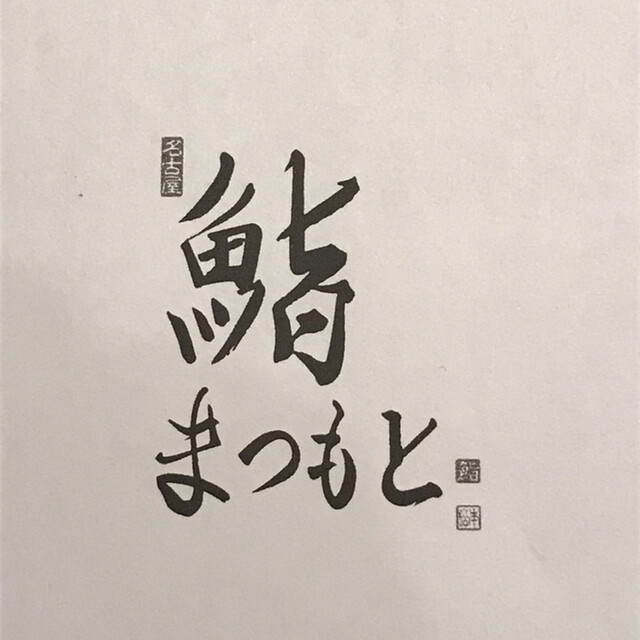 名古屋
鮨
まつもと
鮨